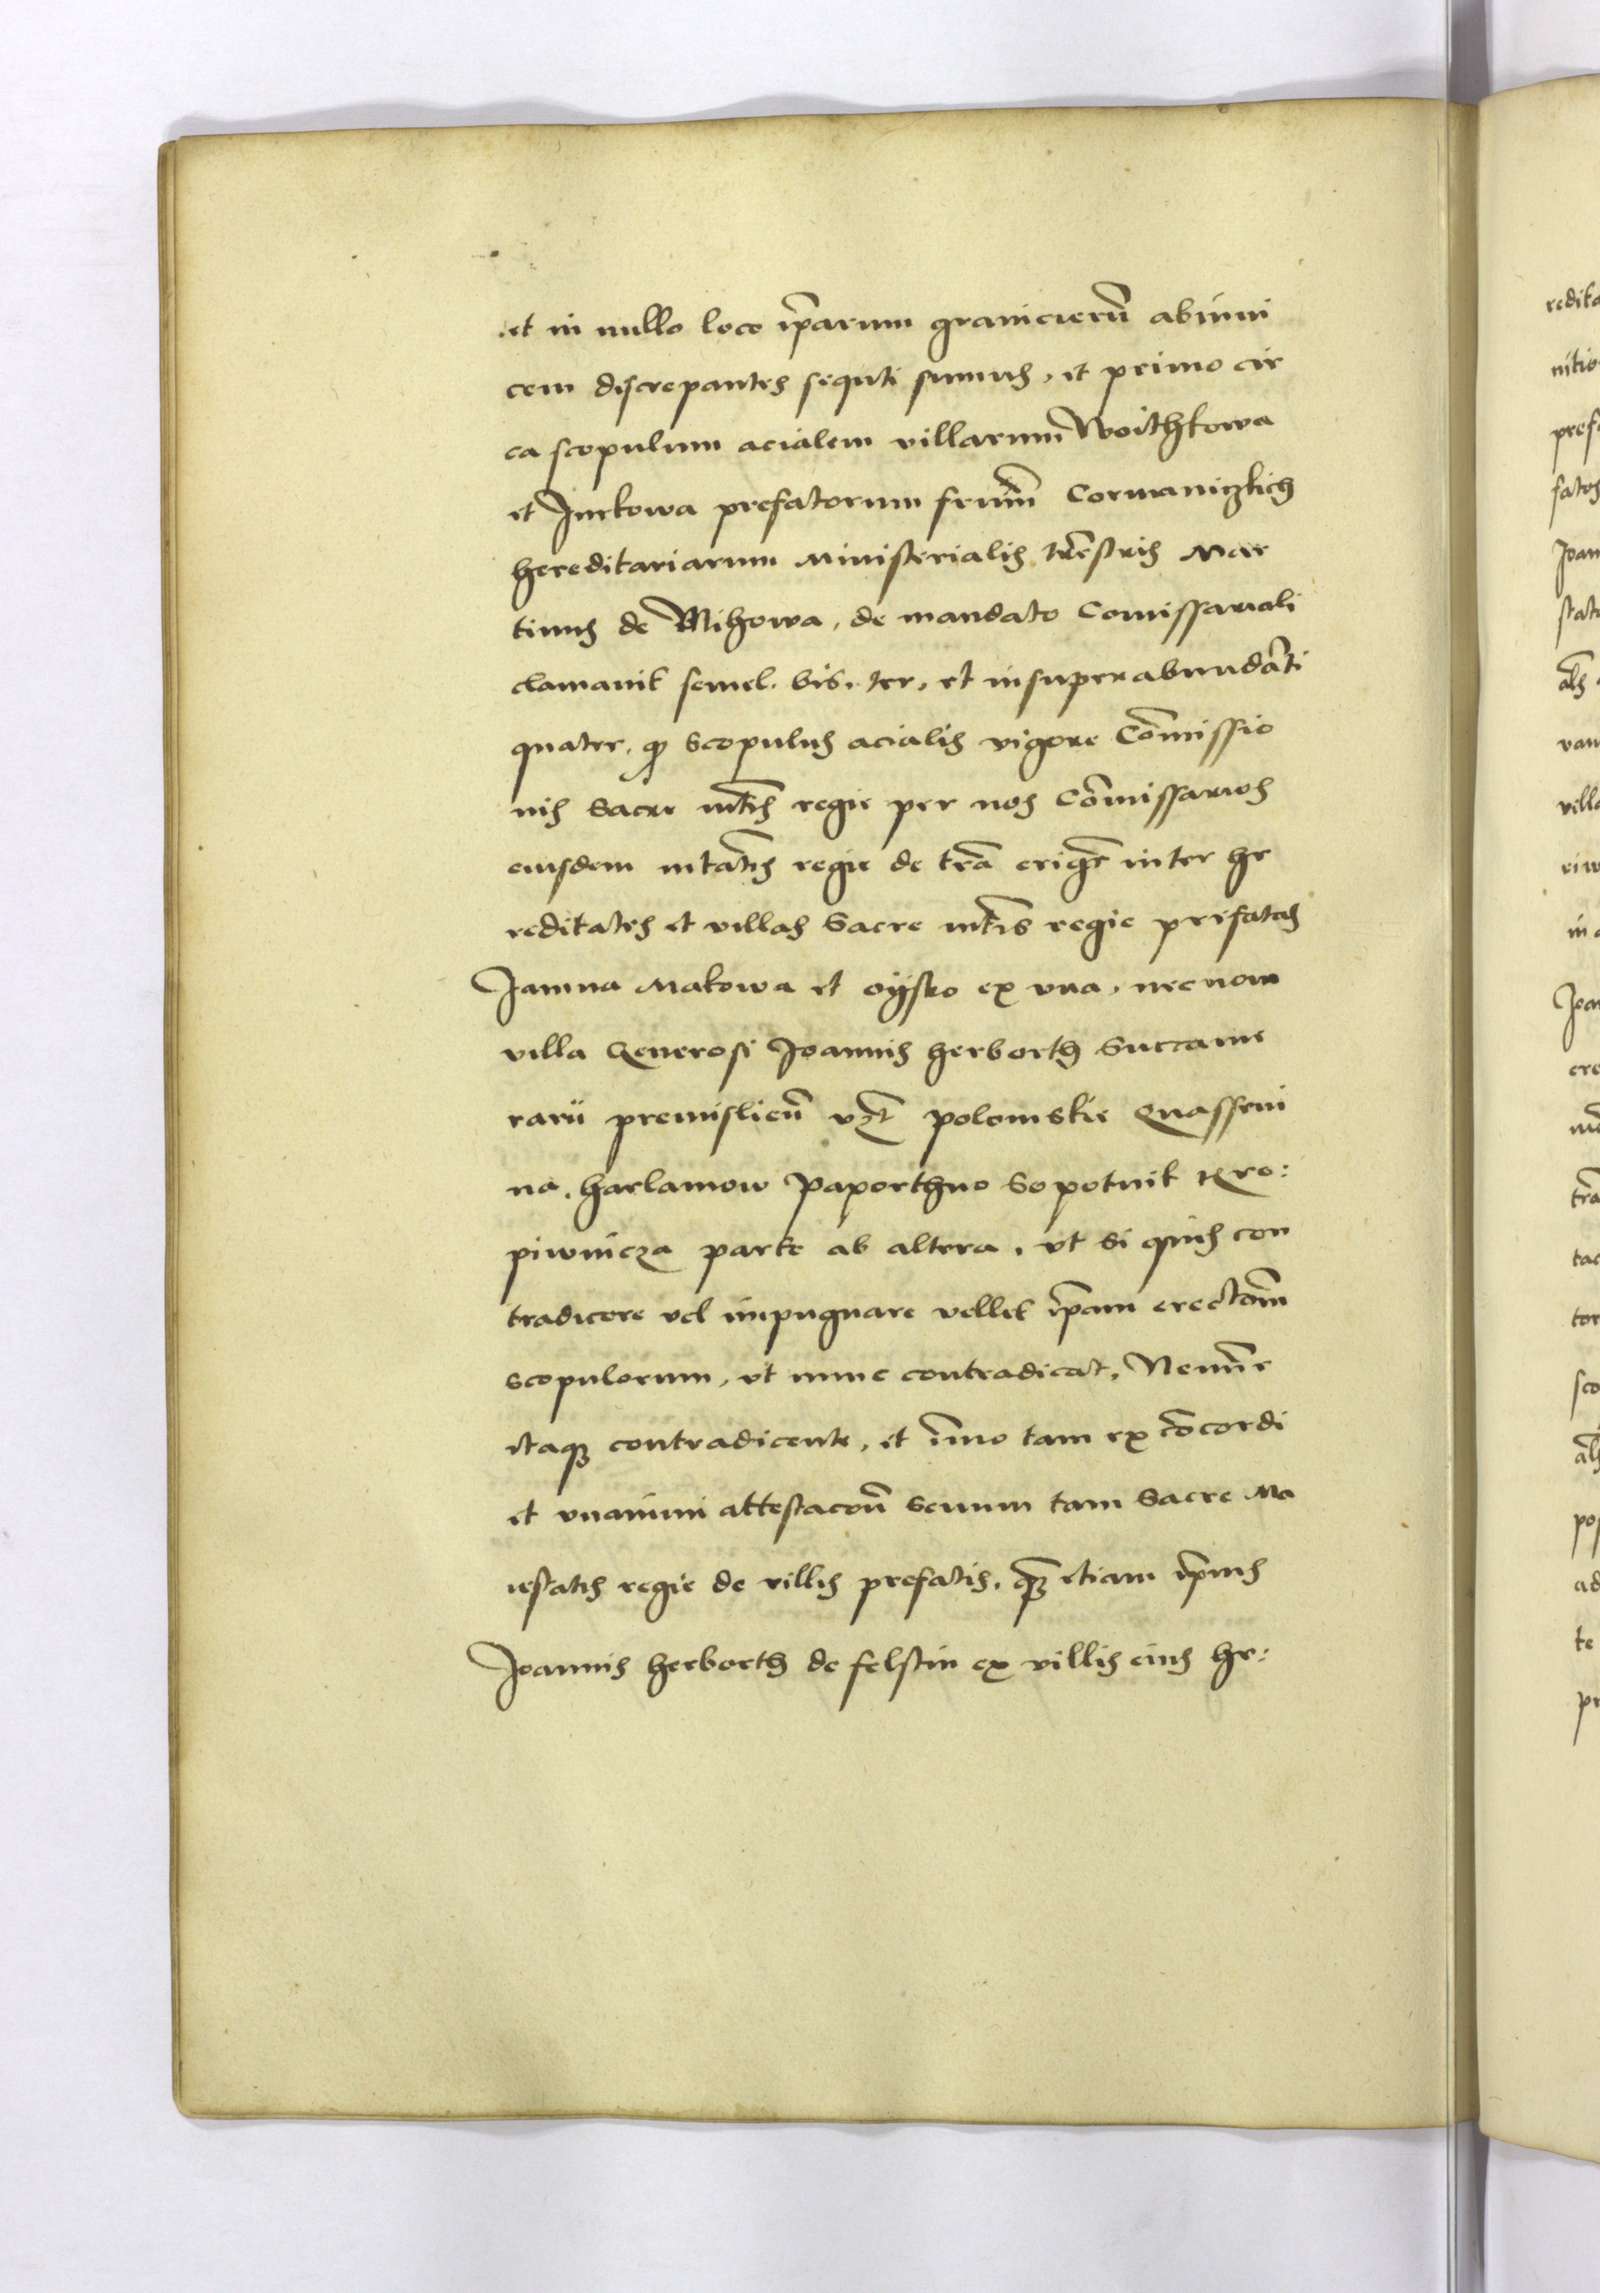 et in nullo loco ip̄arum granicierū abinui
cem discrepantes sequti sumus, et primo cir
ca scopulum acialem villarum Woithkowa
et Jurkowa prefatorum frm̄ Cormaniczkich
hereditariarum ministerialis trēstris Mar
tinus de Mihowa, de mandato Comissariali
clamavit semel. bis. ter, et insuperabundāti
quater, qꝫ Scopulus acialis vigore Cōmissio
nis Sacre mt̄is regie per nos Cōmissarios
eiusdem mtātis regie de trā erigr̄ inter he
reditates et villas Sacre mt̄is regie prefatas
Jamna Makowa et oyssko ex vna, necnon
villa Generosi Joannis herborth Succame
rarii premislien̄ vzt̄ polomskie Quasseni
na, harlamow paporthno Sopotnik Kro:
piwnicza parte ab altera, vt si quis con
tradicere vel impugnare vellet ip̄am erectōm̄
scopulorum, vt nunc contradicat, Nemīe
itaqꝫ contradicente, et īmo tam ex cōcordi
et vnanimi attestacōn̄ Senum tam Sacre Ma
iestatis regie de villis prefatis, qꝫ etiam ip̄ius
Joannis herborth de felstin ex villis eius he:
redita
nitio
prefa
fatos
Joan
van
villa
in
Joan
ad
te